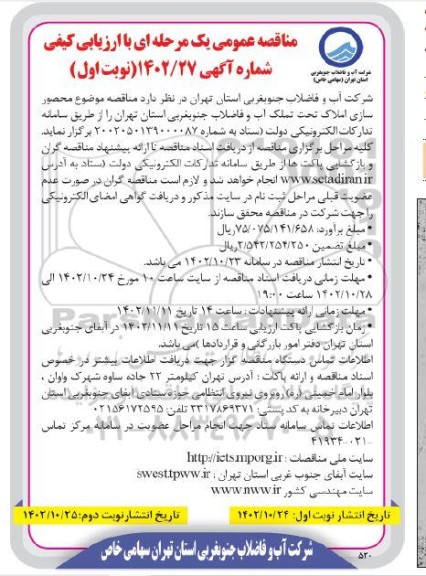 مناقصه عمومی یک مرحله ای با ارزیابی کیفی
شماره آگهی ۱۴۰۲/۲۷ (نوبت اول)
شرکت آب و فاضلاب جنوبغربی
استان تهران (سهامی خاص)
شرکت آب و فاضلاب جنوبغربی استان تهران در نظر دارد مناقصه موضوع محصور
سازی املاک تحت تملک آب و فاضلاب جنوبغربی استان تهران را از طریق سامانه
تدارکات الکترونیکی دولت (ستاد به شماره ۲۰۰۲۰۵۰۱۳۹۰۰۰۰۸۷ برگزار نماید.
کلیه مراحل برگزاری مناقصه از دریافت اسناد مناقصه تا ارائه پیشنهاد مناقصه گران
و بازگشایی پاکت ها از طریق سامانه تدارکات الکترونیکی دولت (ستاد به آدرس
www.setadiran.ir انجام خواهد شد و لازم است مناقصه گران در صورت عدم
عضویت قبلی مراحل ثبت نام در سایت مذکور و دریافت گواهی امضای الکترونیکی
را جهت شرکت در مناقصه محقق سازند.
• مبلغ برآورد: ۷۵/۰۷۵/۱۴۱/۶۵۸ریال
• مبلغ تضمین ۲/۵۴۲/۲۵۴/۲۵۰ریال
• تاریخ انتشار مناقصه در سامانه ۱۴۰۲/۱۰/۲۳ می باشد.
• مهلت زمانی دریافت اسناد مناقصه از سایت ساعت ۱۰ مورخ ۱۴۰۲/۱۰/۲۴ الی
۱۴۰۲/۱۰/۲۸ ساعت ۱۹:۰۰
• مهلت زمانی ارائه پیشنهادات : ساعت ۱۴ تاریخ ۱۴۰۲/۱۱/۱۱
• زمان بازگشایی پاکت ارزیابی ساعت ۱۵ تاریخ ۱۴۰۲/۱۱/۱۱ در آبفای جنوبغربی
استان تهران دفتر امور بازرگانی و قراردادها )می باشد.
اطلاعات تماس دستگاه مناقصه گزار جهت دریافت اطلاعات بیشتر در خصوص
اسناد مناقصه و ارائه پاکات : آدرس تهران کیلومتر ۲۲ جاده ساوه شهرک واوان ،
بلوار امام خمینی (ره) روبروی نیروی انتظامی حوزه ستادی آبفای جنوبغربی استان
تهران دبیرخانه به کد پستی: ۳۳۱۷۸۶۹۳۷۱ تلفن: ۰۲۱۵۶۱۷۲۵۹۵
اطلاعات تماس سامانه ستاد جهت انجام مراحل عضویت در سامانه مرکز تماس
۰۲۱-۴۱۹۳۴
سایت ملی مناقصات : http://iets.mporg.ir
سایت آبفای جنوب غربی استان تهران : swest.tpww.ir
سایت مهندسی کشور www.nww.ir
تاریخ انتشار نوبت اول: ۱۴۰۲/۱۰/۲۴
تاریخ انتشار نوبت دوم: ۱۴۰۲/۱۰/۲۵
شرکت آب و فاضلاب جنوبغربی استان تهران سهامی خاص
۵۲۰